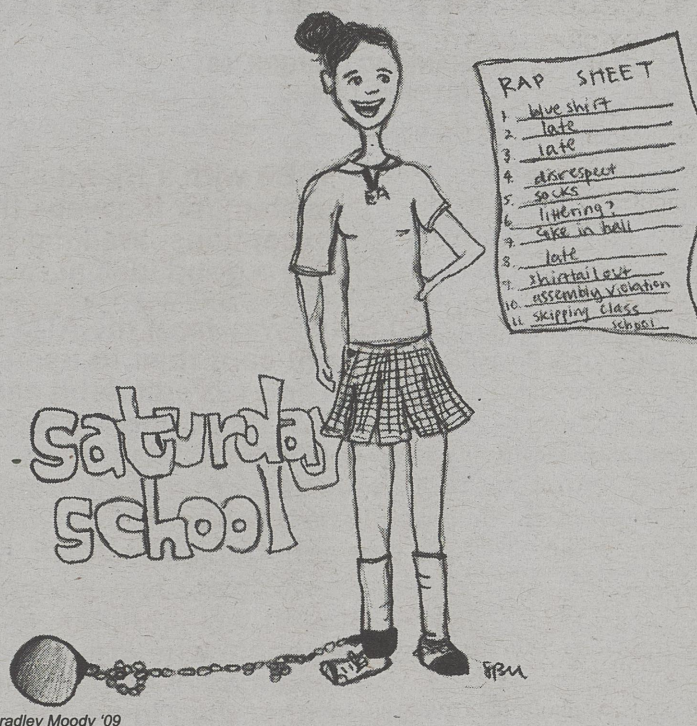 RAP SHEET
1. blue shirt
2. late
3. late
4. disrespect
5. socks
6. littering?
7. in hall
8. late
9. shirttail out
10. assembly violation
11. skipping class
school
EA
saturday
school
SBM
radley Moody '09